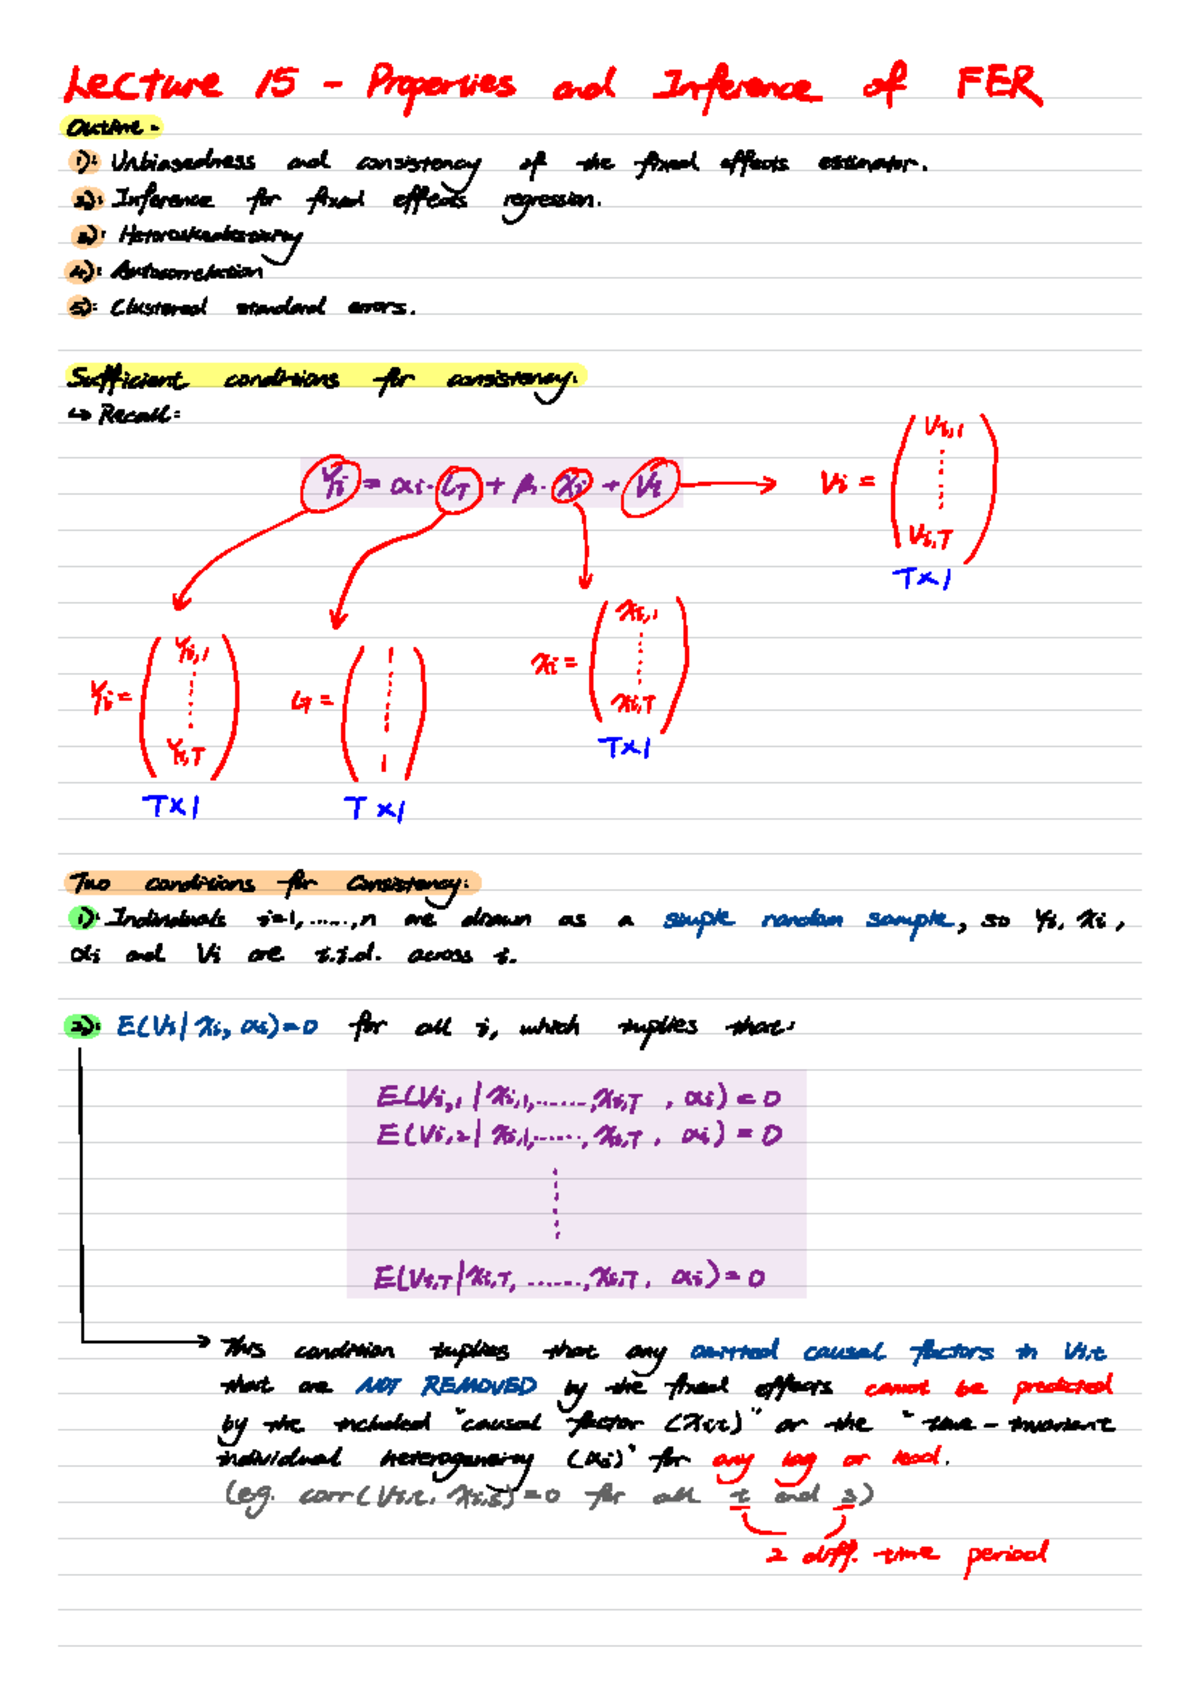 Lecture 15 - Properties and Inference of FER
Outline -
1): Unbiasedness and consistency of the fixed effects estimator.
2): Inference for fixed effects regression.
3): Heteroskedasticity
4): Autocorrelation
5): Clustered standard errors.
Sufficient conditions for consistency:
↳ Recall:
Yi = αi · ιT + β · Xi + Vi → Vi = ( Vi,1 ⋮ Vi,T ) T×1
Yi = ( Yi,1 ⋮ Yi,T ) T×1
ιT = ( 1 ⋮ 1 ) T×1
Xi = ( Xi,1 ⋮ Xi,T ) T×1
Two conditions for Consistency:
1): Individuals i=1, ......, n are drawn as a simple random sample, so Yi, Xi,
αi and Vi are i.i.d. across i.
2): E(Vi | Xi, αi) = 0 for all i, which implies that:
E(Vi,1 | Xi,1, ......, Xi,T , αi) = 0
E(Vi,2 | Xi,1, ......, Xi,T , αi) = 0
⋮
E(Vi,T | Xi,T, ......, Xi,T , αi) = 0
→ This condition implies that any omitted causal factors in Vi,t
that are NOT REMOVED by the fixed effects cannot be predicted
by the included "causal factor (Xit)" or the "time-invariant
individual heterogeneity (αi)" for any lag or lead.
(eg. corr(Vi,t, Xi,s) = 0 for all t and s)
2 diff. time period